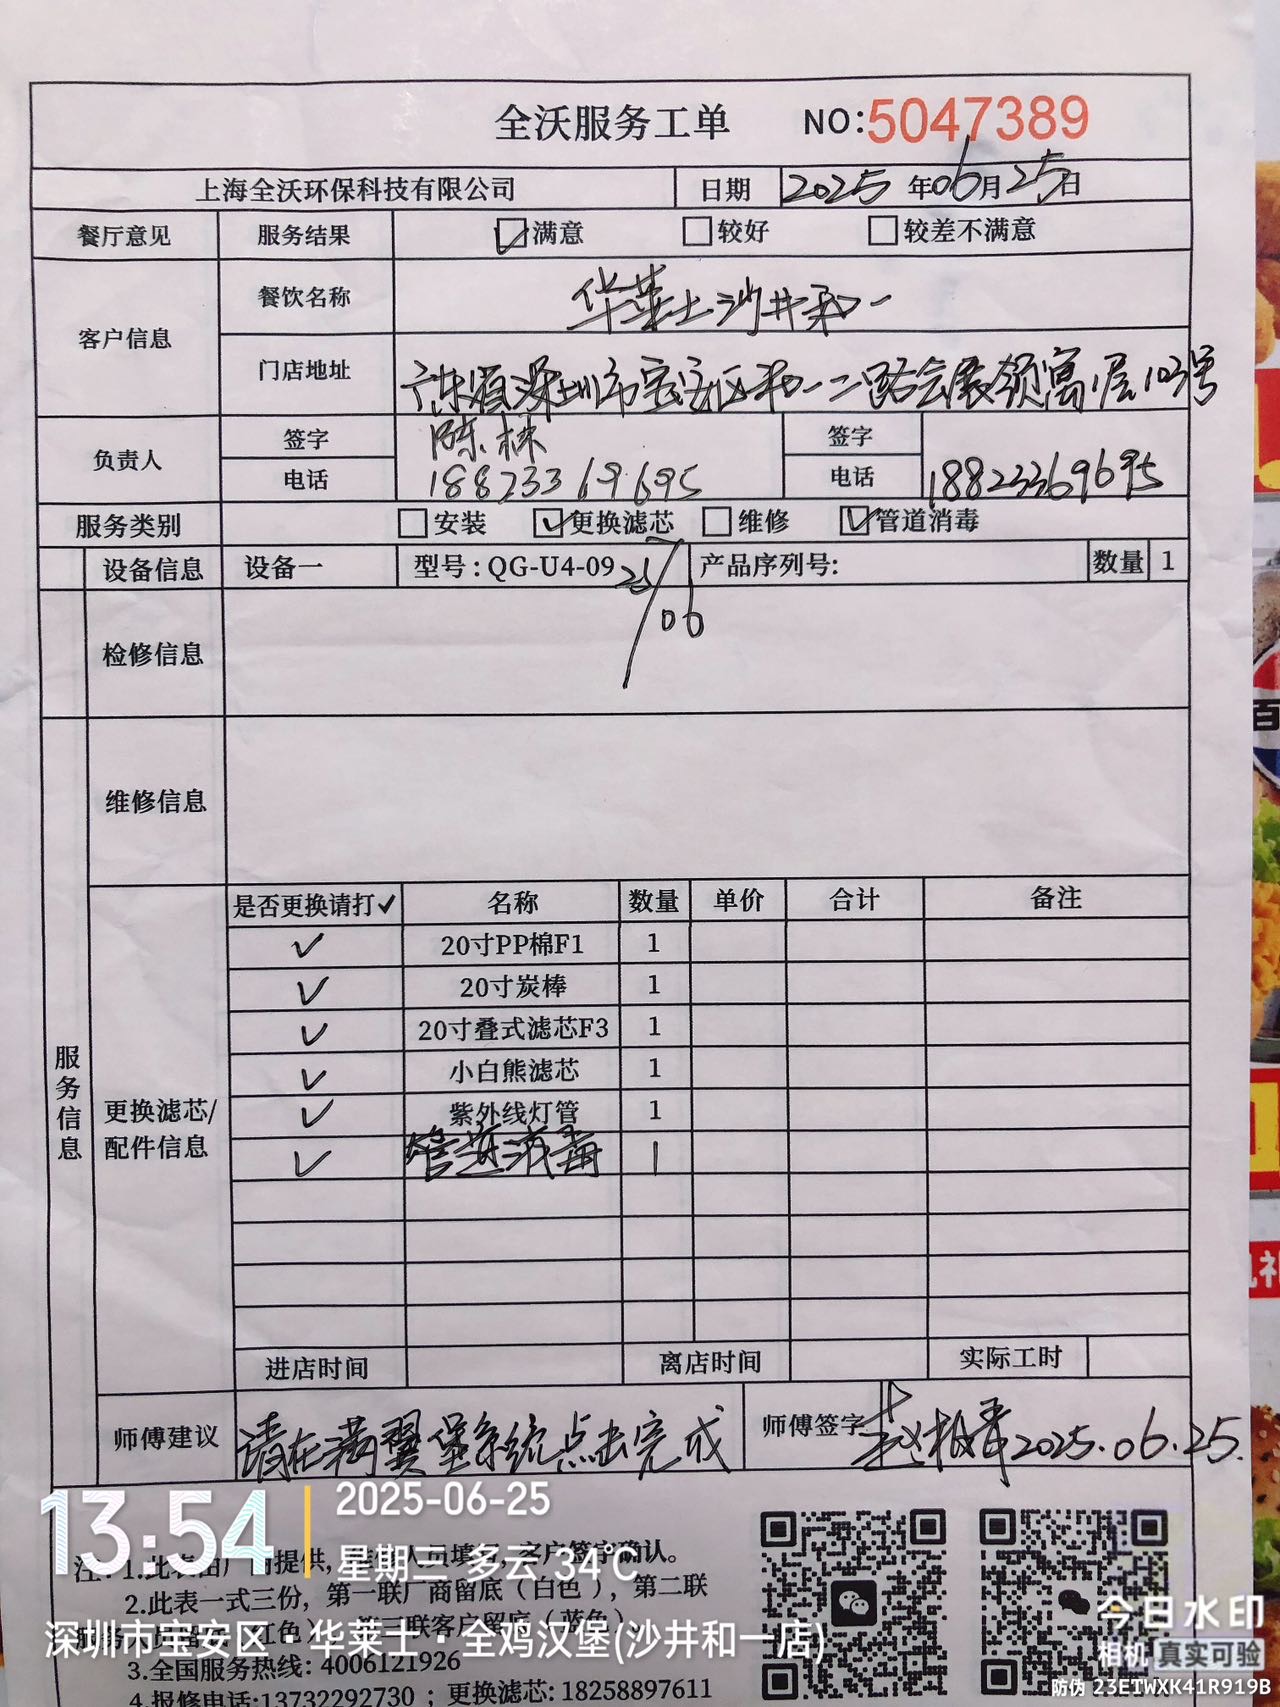 全沃服务工单 NO:5047389
上海全沃环保科技有限公司 日期 2025年06月25日
餐厅意见 服务结果 ☑满意 □较好 □较差不满意
客户信息 餐饮名称 华莱士沙井和一
门店地址 广东省深圳市宝安区和一二路会展领寓1层103号
负责人 签字 陈林 签字
电话 18823369695 电话 18823369695
服务类别 □安装 ☑更换滤芯 □维修 ☑管道消毒
设备信息 设备一 型号:QG-U4-09 产品序列号: 数量 1
25/06
检修信息
维修信息
服务信息
更换滤芯/
配件信息
是否更换请打✓ 名称 数量 单价 合计 备注
✓ 20寸PP棉F1 1
✓ 20寸炭棒 1
✓ 20寸叠式滤芯F3 1
✓ 小白熊滤芯 1
✓ 紫外线灯管 1
✓ 管道消毒 1
进店时间 离店时间 实际工时
师傅建议 请在满翼堡系统点击完成 师傅签字 赵 2025.06.25.
13:54 2025-06-25
星期三 多云 34℃
深圳市宝安区·华莱士·全鸡汉堡(沙井和一店)
注:1.此表由厂商提供,人员填写,客户签字确认。
2.此表一式三份,第一联厂商留底(白色),第二联
红色 第三联客户留底(蓝色)
3.全国服务热线: 4006121926
4.报修电话:13732292730 ; 更换滤芯: 18258897611
今日水印
相机 真实可验
防伪 23ETWXK41R919B
百